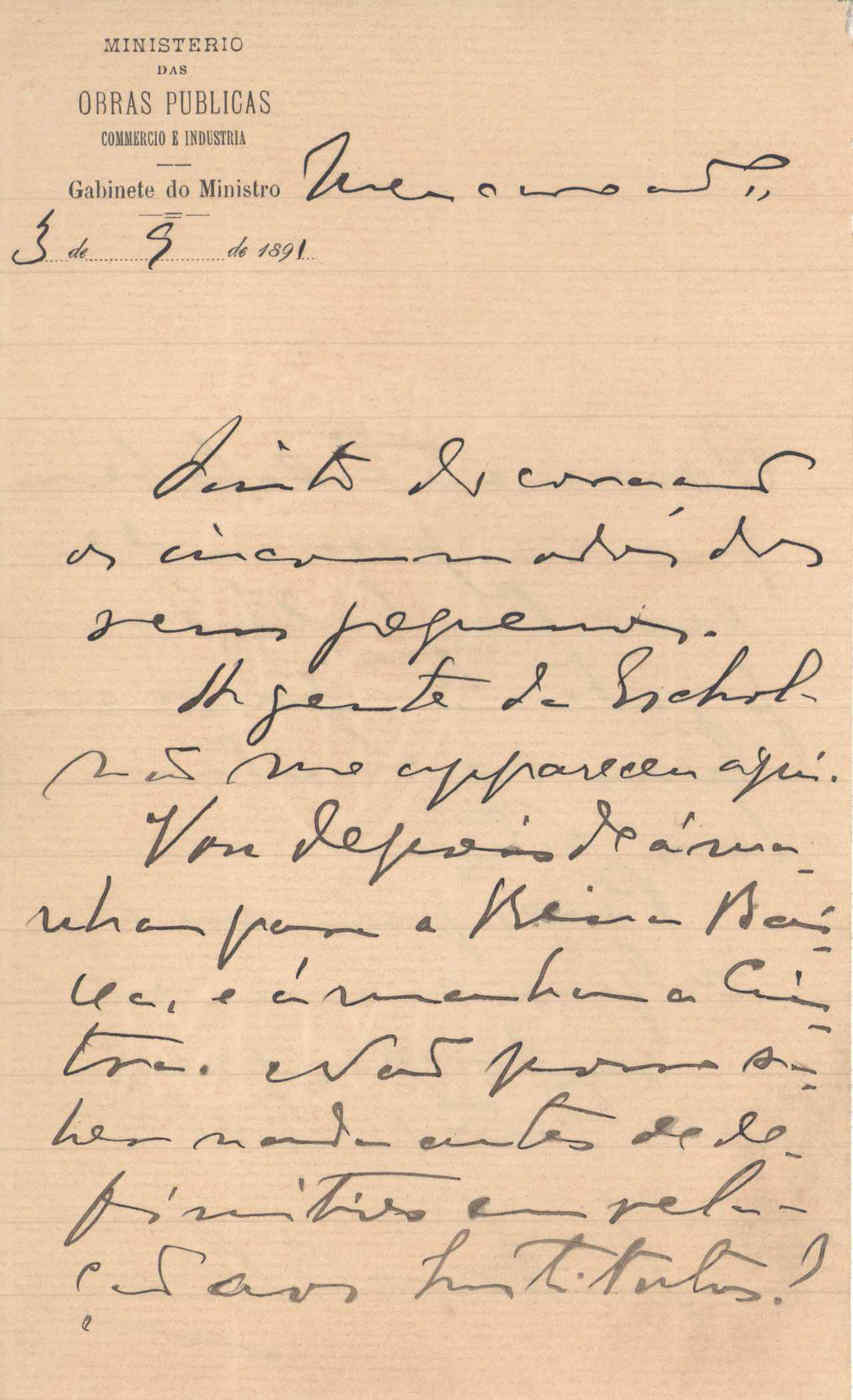 MINISTERIO
DAS
OBRAS PUBLICAS
COMMERCIO E INDUSTRIA
Gabinete do Ministro
3 de 9 de 1891
Meu
Sinto do coração
os incommodos dos
seus pequenos.
A gente da Eschola
não me appareceu aqui.
Vou depois de áma-
nhan para a Beira Bai-
xa, e ámanhan a Cin-
tra. Não posso sa-
ber nada antes de de-
finitivo em rela-
ção aos Institutos?